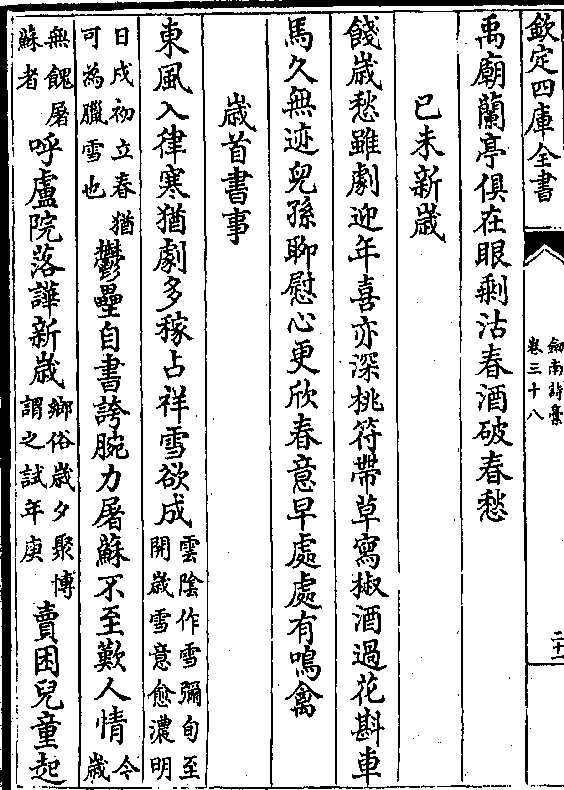 欽定四庫全書
劔南詩稾
卷三十八
二十一
禹廟蘭亭俱在眼剩沽春酒破春愁
己未新歳
餞歳愁雖劇迎年喜亦深桃符帶草寫椒酒過花斟車
馬久無迹兒孫聊慰心更欣春意早處處有鳴禽
歳首書事
東風入律寒猶劇多稼占祥雪欲成雲隂作雪彌旬至開歳雪意愈濃明
日戌初立春猶可為臘雪也鬱壘自書誇腕力屠蘇不至歎人情今歳
無餽屠蘇者呼盧院落譁新歳鄉俗歳夕聚博謂之試年庚賣困兒童起